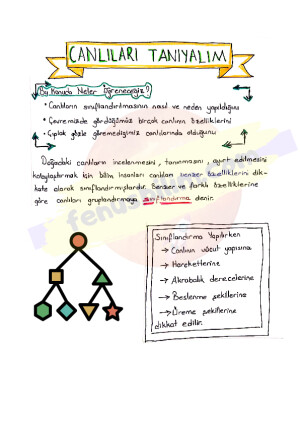 CANLILARI TANIYALIM
Bu Konuda Neler Öğreneceğiz?
* Canlıların sınıflandırılmasının nasıl ve neden yapıldığını
* Çevremizde gördüğümüz birçok canlının özelliklerini
* Çıplak gözle göremediğimiz canlılarında olduğunu
Doğadaki canlıların incelenmesini, tanınmasını, ayırt edilmesini
kolaylaştırmak için bilim insanları canlıları benzer özelliklerini dik-
kate alarak sınıflandırmışlardır. Benzer ve farklı özelliklerine
göre canlıları gruplandırmaya sınıflandırma denir.
Sınıflandırma Yapılırken
→ Canlının vücut yapısına
→ Hareketlerine
→ Akrabalık derecelerine
→ Beslenme şekillerine
→ Üreme şekillerine
dikkat edilir.